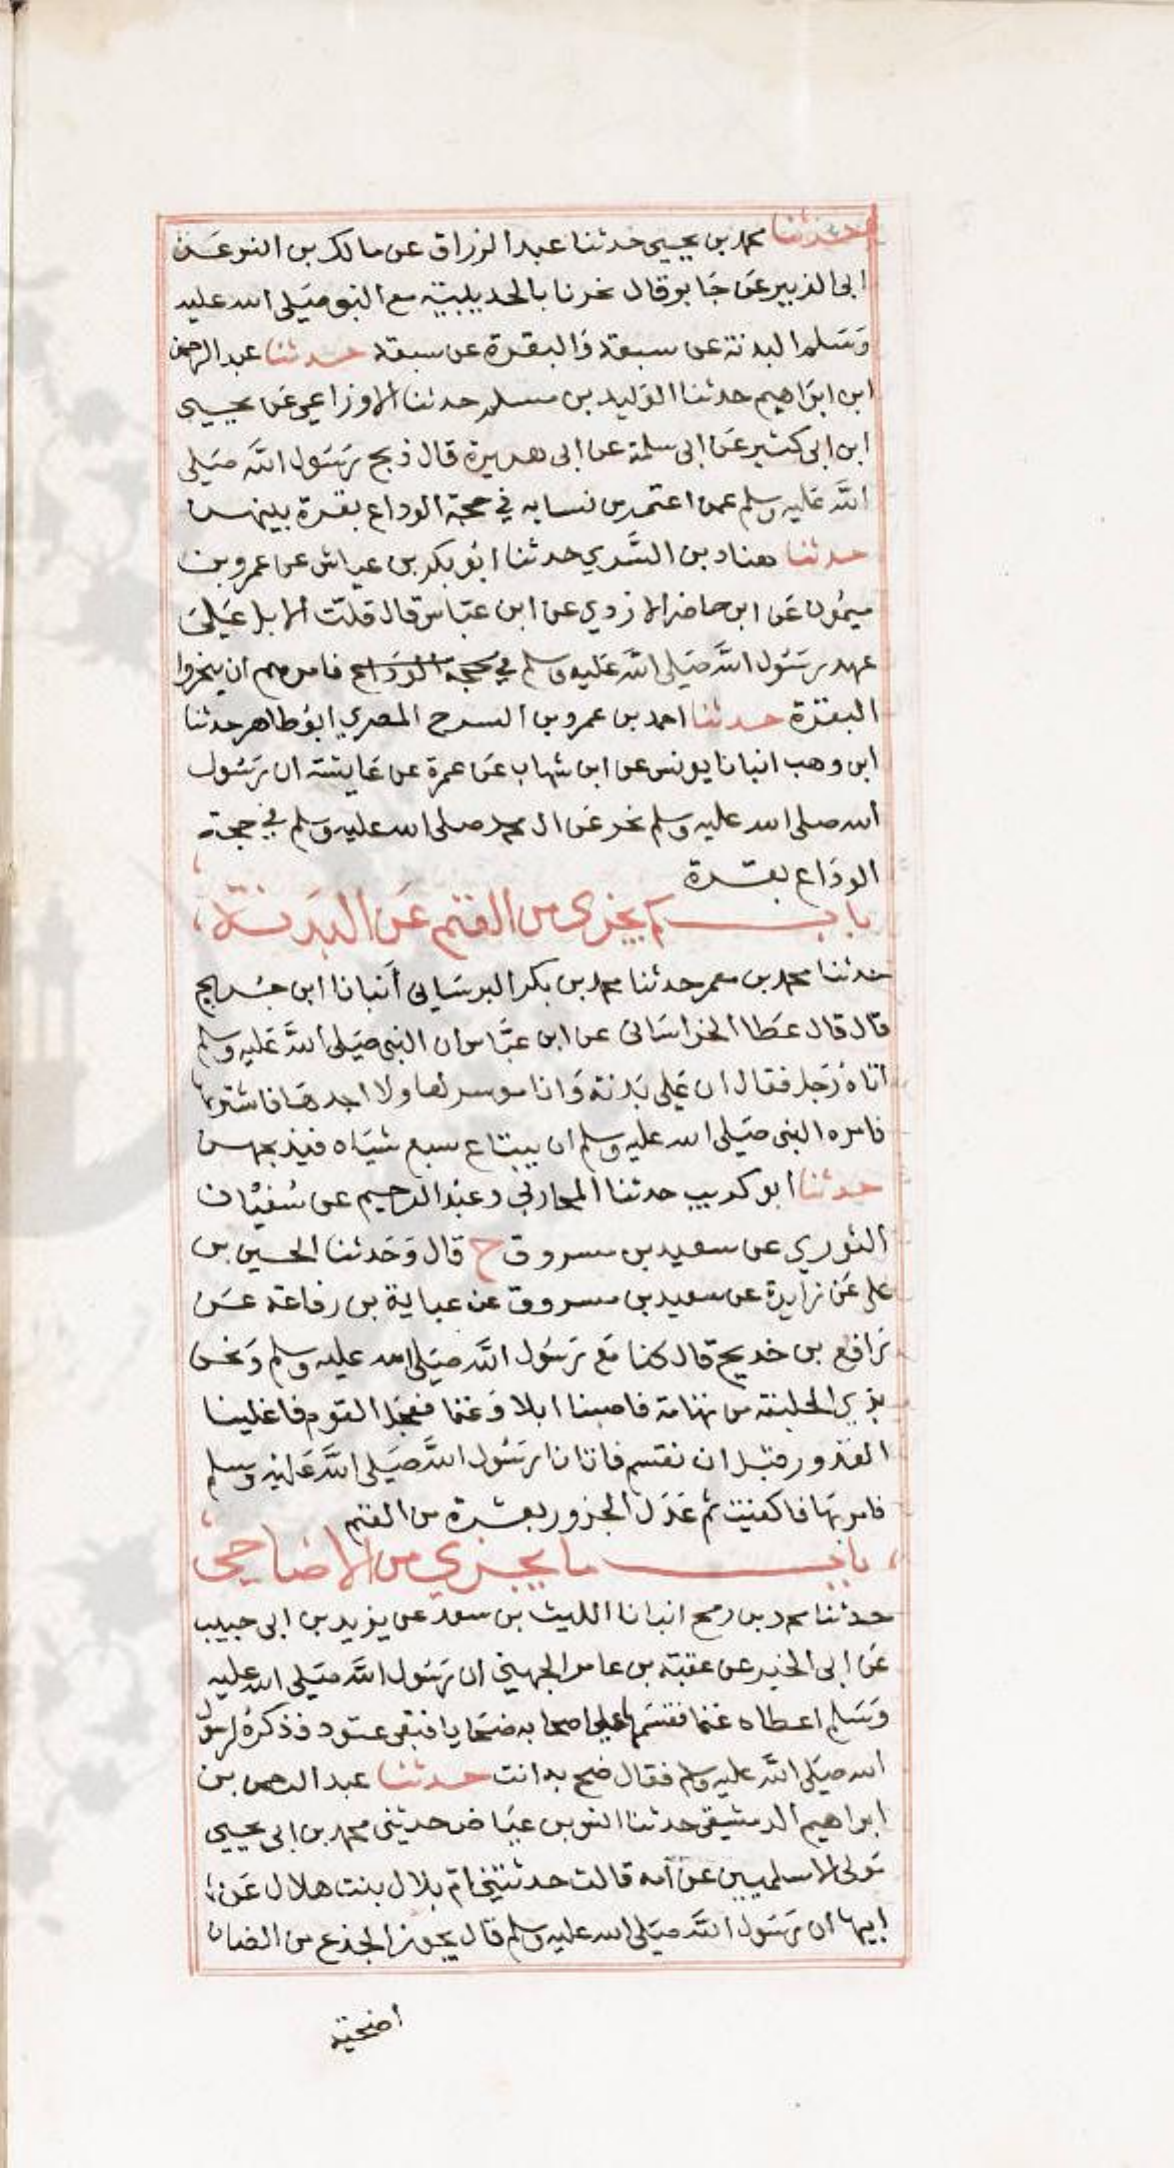 حدثنا محمد بن يحيى حدثنا عبد الرزاق عن مالك بن انس عن
ابى الزبير عن جابر قال نحرنا بالحديبية مع النبى صلى الله عليه
وسلم البدنة عن سبعة والبقرة عن سبعة حدثنا عبد الرحمن
ابن ابراهيم حدثنا الوليد بن مسلم حدثنا الاوزاعي عن يحيى
ابن ابى كثير عن ابى سلمة عن ابى هريرة قال ذبح رسول الله صلى
الله عليه وسلم عمن اعتمر من نسايه في حجة الوداع بقرة بينهن
حدثنا هناد بن السري حدثنا ابو بكر بن عياش عن عمرو بن
ميمون عن ابى حاضر الازدي عن ابن عباس قال قلت الابل على
عهد رسول الله صلى الله عليه وسلم في حجة الوداع فامرهم ان ينحروا
البقرة حدثنا احمد بن عمرو بن السرح المصري ابو طاهر حدثنا
ابن وهب انبانا يونس عن ابن شهاب عن عمرة عن عايشة ان رسول
الله صلى الله عليه وسلم نحر عن ال محمد صلى الله عليه وسلم في حجة
الوداع بقرة
باب كم يجزى من الغنم عن البدنة
حدثنا محمد بن معمر حدثنا محمد بن بكر البرسانى أنبانا ابن جريج
قال قال عطا الخراسانى عن ابن عباس ان النبى صلى الله عليه وسلم
اتاه رجل فقال ان علي بدنة وانا موسر لها ولا اجدها فاشتريها
فامره النبى صلى الله عليه وسلم ان يبتاع سبع شياه فيذبحهن
حدثنا ابو كريب حدثنا المحاربي وعبد الرحيم عن سفيان
الثوري عن سعيد بن مسروق ح قال وحدثنا الحسين بن
علي عن زايدة عن سعيد بن مسروق عن عباية بن رفاعة عن
رافع بن خديج قال كنا مع رسول الله صلى الله عليه وسلم ونحن
بذي الحليفة من تهامة فاصبنا ابلا وغنما فعجل القوم فاغلينا
القدور قبل ان نقسم فاتانا رسول الله صلى الله عليه وسلم
فامر بها فاكفيت ثم عدل الجزور بعشرة من الغنم
باب ما يجزي من الاضاحي
حدثنا محمد بن رمح انبانا الليث بن سعد عن يزيد بن ابى حبيب
عن ابى الخير عن عقبة بن عامر الجهني ان رسول الله صلى الله عليه
وسلم اعطاه غنما فقسمها على اصحابه ضحايا فبقى عتود فذكره لرسول
الله صلى الله عليه وسلم فقال ضح به انت حدثنا عبد الرحمن بن
ابراهيم الدمشقي حدثنا انس بن عياض حدثنى محمد بن ابى يحيى
مولى الاسلميين عن امه قالت حدثتني ام بلال بنت هلال عن
ابيها ان رسول الله صلى الله عليه وسلم قال يجوز الجذع من الضان
اضحية